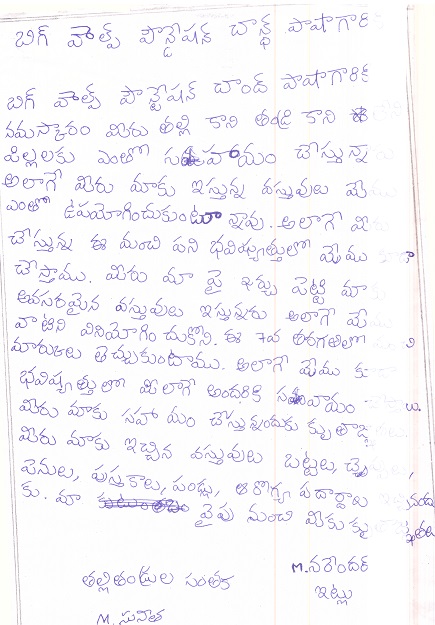 బిగ్ వాల్ఫ్ ఫౌన్డేషన్ చాన్ద్ పాషాగారికి
బిగ్ వాల్ఫ్ ఫౌన్డేషన్ చాంద్ పాషాగారికి
నమస్కారం మీరు తల్లి కాని తండ్రి కాని
పిల్లలకు ఎంతో సహాయం చేస్తున్నా
అలాగే మీరు మాకు ఇస్తున్న వస్తువులు మేము
ఎంతో ఉపయోగించుకుంటూ న్నావు. అలాగే మీరు
చేస్తున్న ఈ మంచి పని భవిష్యత్తులో మేము కూడా
చేస్తాము. మీరు మా పై ఖర్చు పెట్టి మాకు
అవసరమైన వస్తువులు ఇస్తున్నరు అలాగే మేము
వాటిని వినియోగించుకొని. ఈ 7వ తరగతిలో మంచి
మారుకులు తెచ్చుకుంటాము. అలాగే మేము కు
భవిష్యత్తులో మీలాగే అందరికి సహాయం
మీరు మాకు సహాయం చేస్తున్నందుకు కృతజ్ఞ
మీరు మాకు ఇచ్చిన వస్తువులు బట్టలు,
పెనులు, పుస్తకాలు, పండ్లు, ఆరోగ్య పదార్దాలు
కు. మా వైపు నుంచి మీకు కృ
M. నరేందర్
తల్లితండుల సంతక
ఇట్లు
M. సునీత